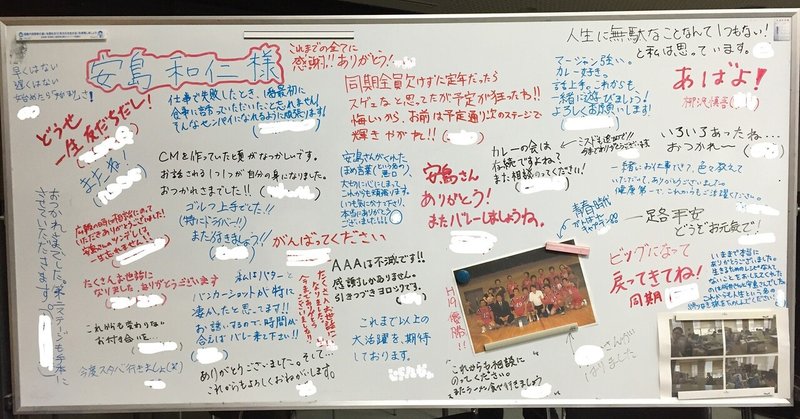 安島 和仁 様
早くはない
遅くはない
始めたら「始まり」さ!
どうせ
一生友だちだし!
またね!
仕事で失敗したとき、1番最初に
そんなセンパイになれるように頑張ります!
これまでの全てに
感謝!!ありがとう!
同期全員欠けずに定年だったら
スゲェなと思ってたが予定が狂ったわ!!
悔しいから、お前は予定通り次のステージで
輝きやがれ!!
人生に無駄なことなんて1つもない!
と私は思っています。
マージャン強い。
カレー好き。
話上手。これからも、
一緒に遊びましょう!
よろしくお願いします!
あばよ!
柳沢慎吾
いろいろあったね…
おつかれ〜
CMを作っていた頃がなつかしいです。
お話される1つ1つが自分の身になりました。
おつかれさまでした!!
ゴルフ上手でした!!
(特にドライバー!!)
また行きましょう!!
がんばってください
安島さんがくれた
ほめ言葉
大切に心にしまって
これからも頑張ります。
本当にありがとう
ございました!!!
安島さん
ありがとう!
またバレーしましょうね。
カレーの会は
存続ですよね?
また相談のってください!
青春時代
一緒にお仕事できて、色々教えて
いただいて、ありがとうございました。
健康第一で、これからもご活躍ください。
一路平安
どうぞお元気で!
ビッグになって
戻ってきてね!
同期
いままで本当に
ありがとうございました。
おつかれさまでした。
たくさんお世話に
なりました。ありがとうございます
これからも変わらない
お付き合いを…
今後スタバ行きましょ
私はパターと
バンカーショットが特に
凄かったと思ってます!!
お誘いするので、時間が
合えばバレー来て下さい!!
ありがとうございました。そして…
これからもよろしくおねがいします。
たくさんお世話に
なりました!!
AAAは不滅です!!
感謝しかありません。
引きつづきヨロシクです。
これまで以上の
大活躍を、期待
しております。
H19優勝!!
これからも相談に
のってください。
またラーメン食べ行きましょう
さんが
はりました